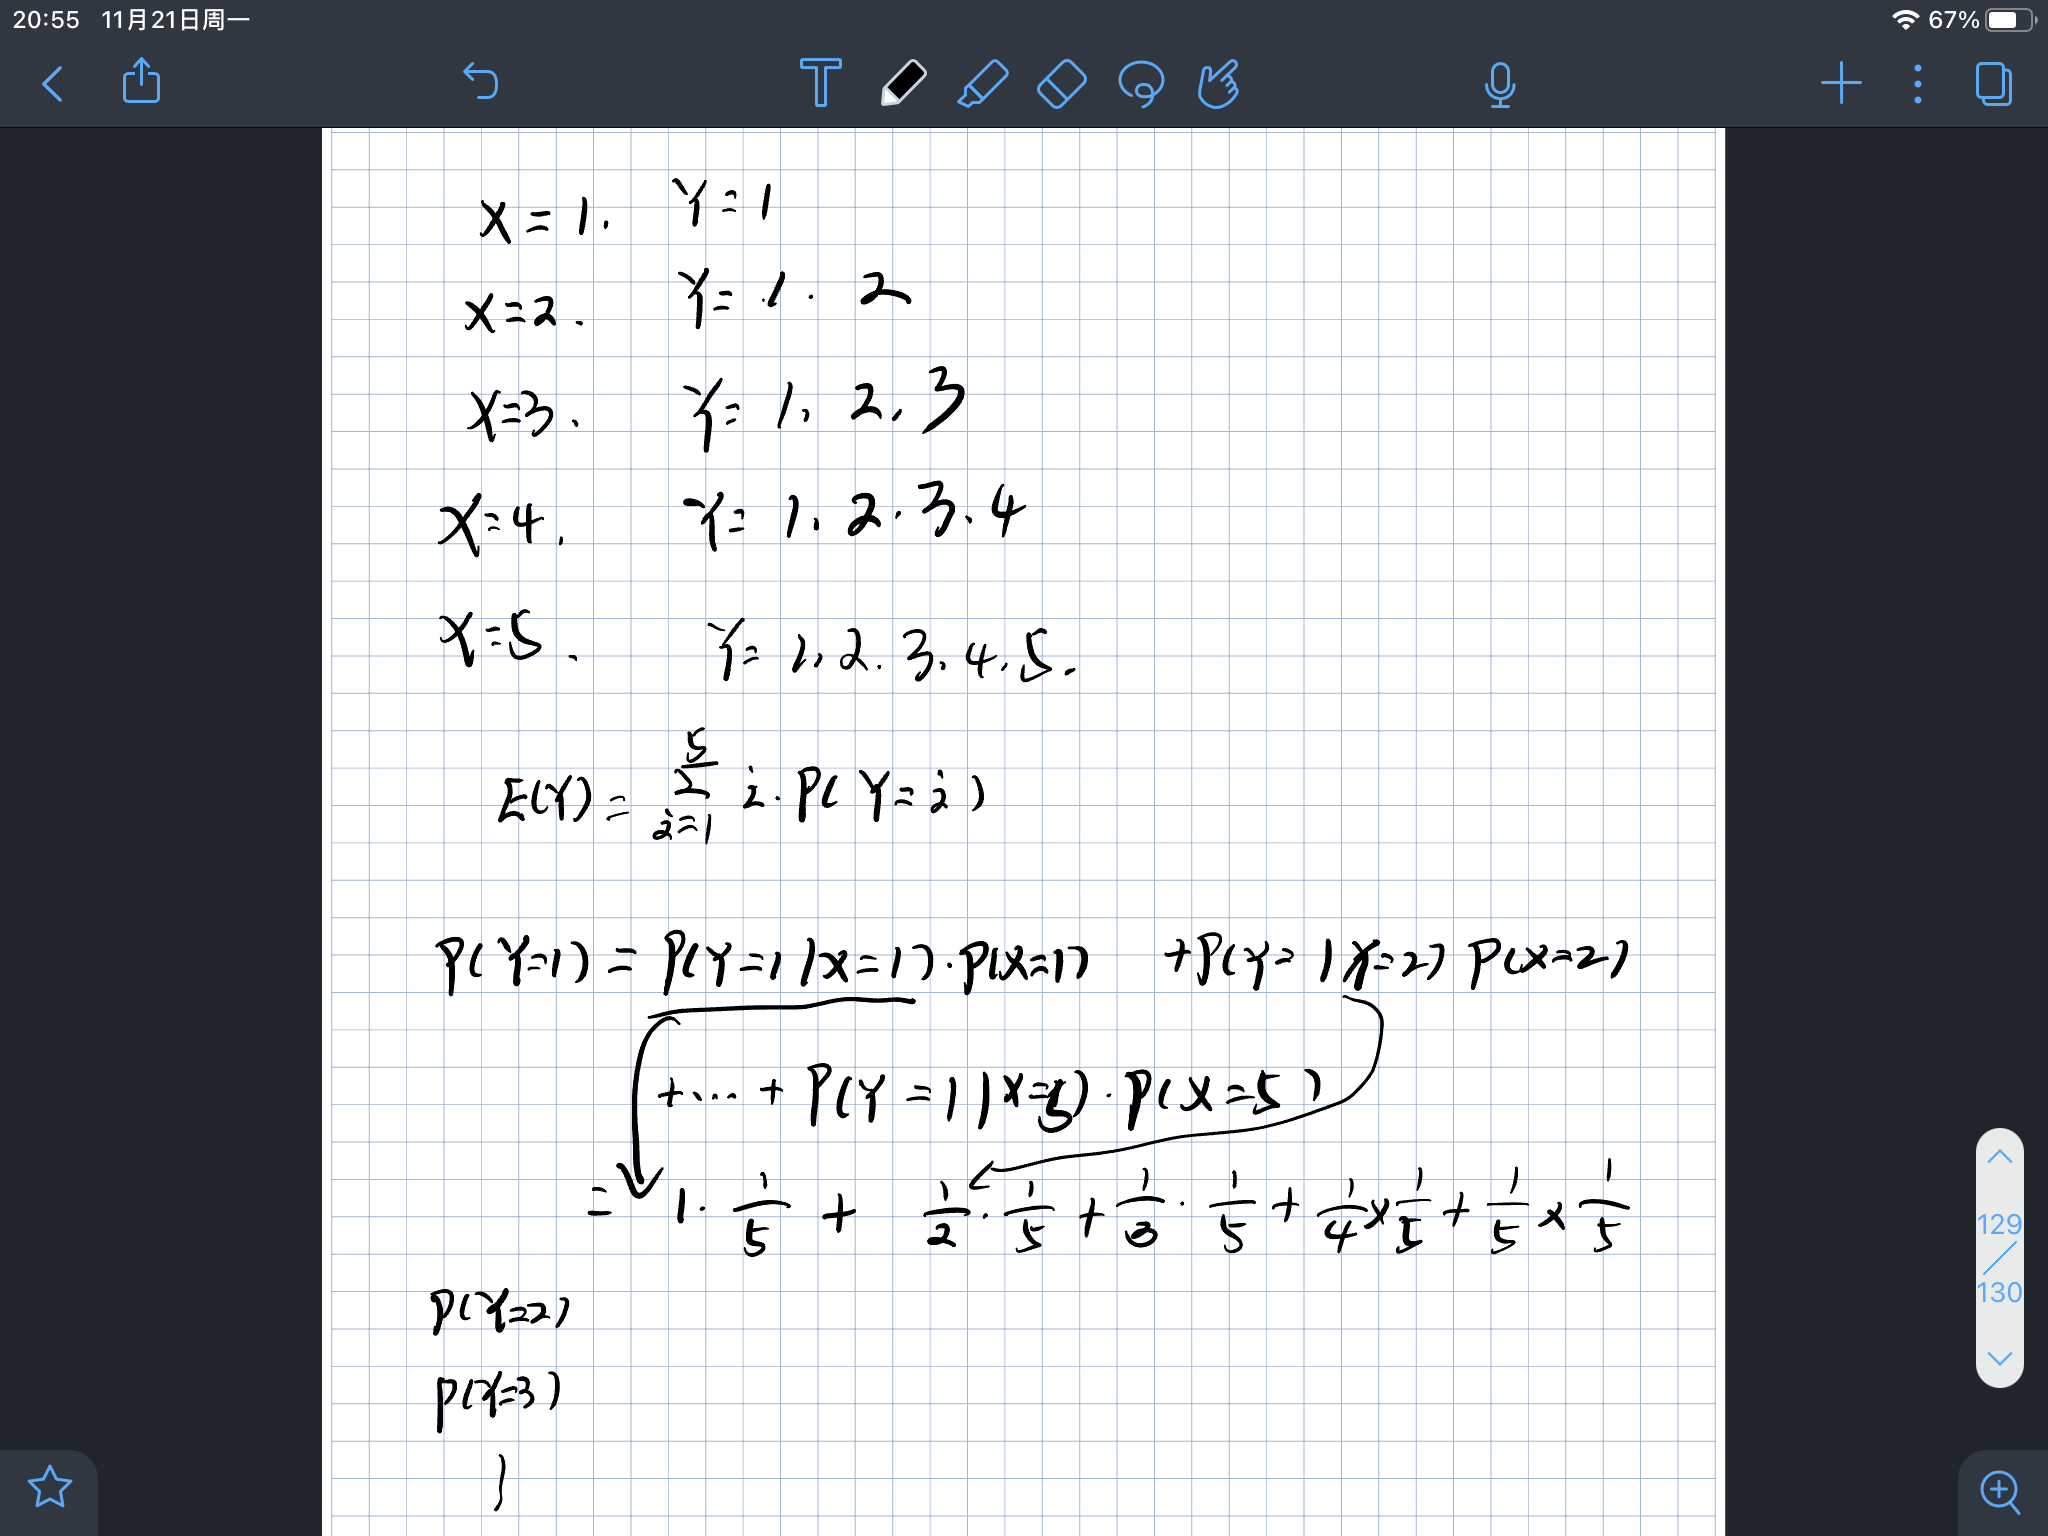 20:55 11月21日周一 67%
X = 1. Y = 1
X = 2. Y = 1. 2
X = 3. Y = 1, 2, 3
X = 4. Y = 1. 2. 3. 4
X = 5. Y = 1, 2. 3. 4. 5.
E(Y) = ∑_{i=1}^{5} i · P(Y = i)
P(Y=1) = P(Y=1|X=1)·P(X=1) + P(Y=1|X=2) P(X=2)
+ ··· + P(Y=1|X=5)·P(X=5)
= 1· 1/5 + 1/2 · 1/5 + 1/3 · 1/5 + 1/4 × 1/5 + 1/5 × 1/5
129
130
P(Y=2)
P(Y=3)